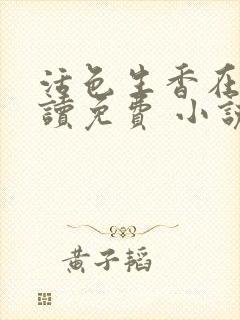 活色生香在
讀免費 小說
黃子韜